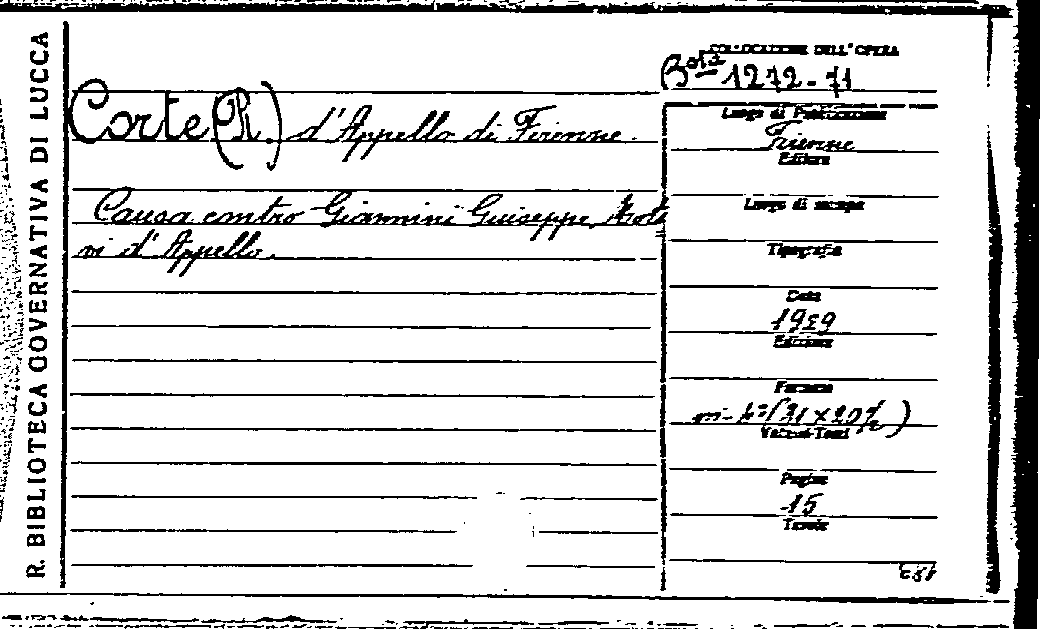 R. BIBLIOTECA GOVERNATIVA DI LUCCA
COLLOCAZIONE DELL'OPERA
Bta 1272-71
Corte (R.) d'Appello di Firenze.
Causa contro Giannini Guiseppe, Moti
vi d'Appello.
Luogo di Pubblicazione
Firenze
Editore
Luogo di stampa
Tipografia
Data
1929
Edizione
Formato
in-4º (31 x 20½)
Volumi-Tomi
Pagine
15
Tavole